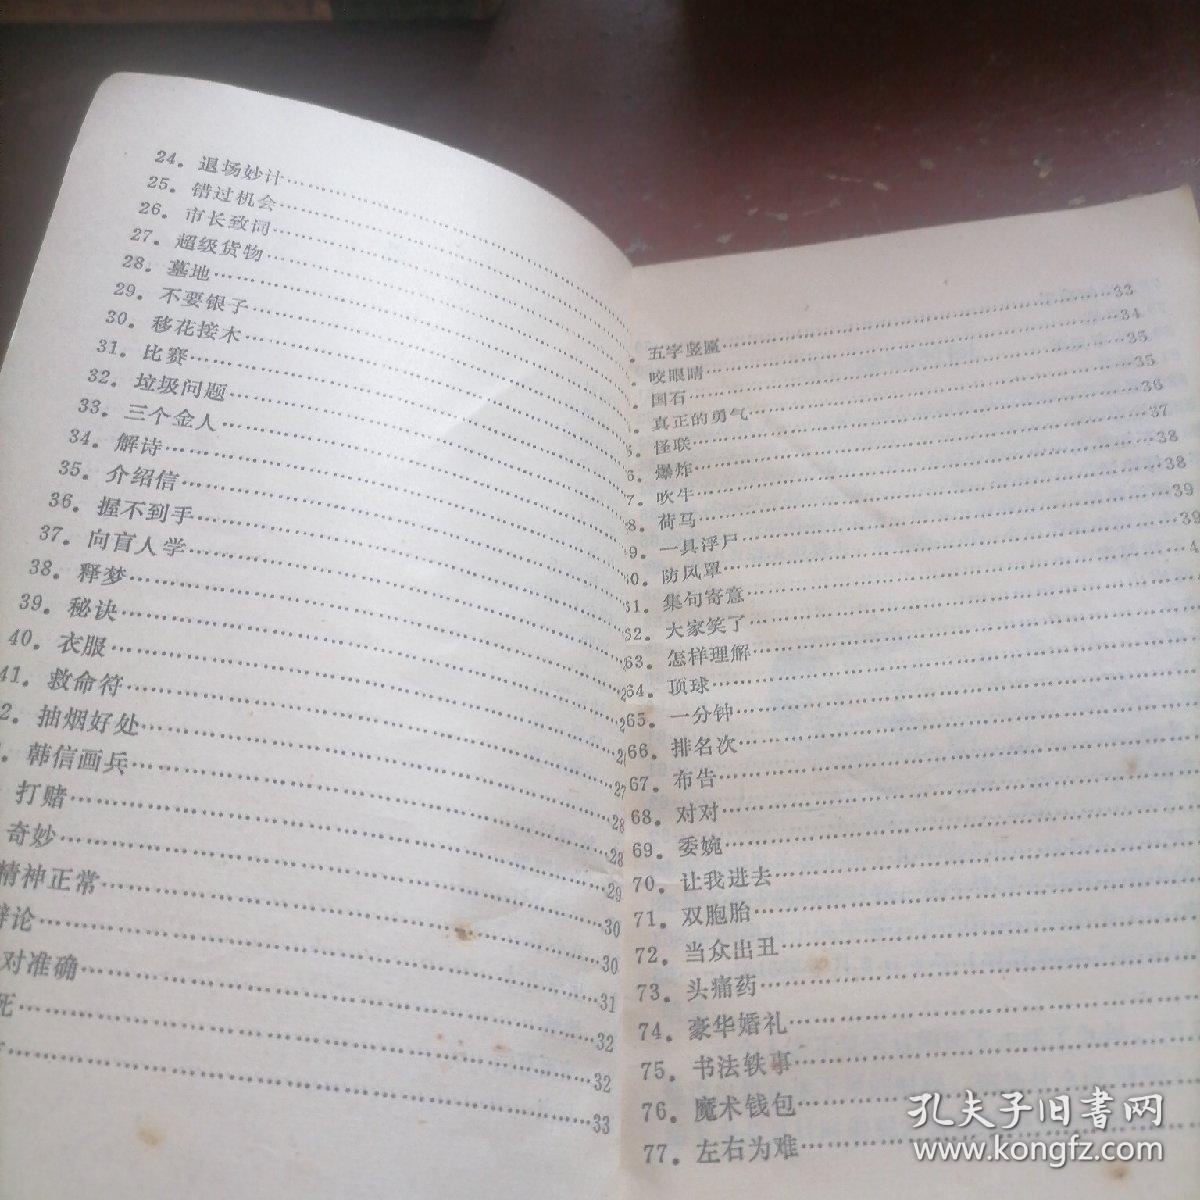 24. 退场妙计
25. 错过机会
26. 市长致词
27. 超级货物
28. 墓地
29. 不要银子
30. 移花接木
31. 比赛
32. 垃圾问题
33. 三个金人
34. 解诗
35. 介绍信
36. 握不到手
37. 向盲人学
38. 释梦
39. 秘诀
40. 衣服
41. 救命符
2. 抽烟好处
韩信画兵……27
打赌……28
奇妙……28
精神正常……29
论……30
对准确……30
死……31
32
32
33
五字竖匾……33
咬眼睛……34
国石……35
真正的勇气……35
怪联……36
6. 爆炸……37
7. 吹牛……38
8. 荷马……38
9. 一具浮尸……39
0. 防风罩……39
61. 集句寄意……4
62. 大家笑了
63. 怎样理解
64. 顶球
65. 一分钟
66. 排名次
67. 布告
68. 对对
69. 委婉
70. 让我进去
71. 双胞胎
72. 当众出丑
73. 头痛药
74. 豪华婚礼
75. 书法轶事
76. 魔术钱包
77. 左右为难
孔夫子旧书网
www.kongfz.com